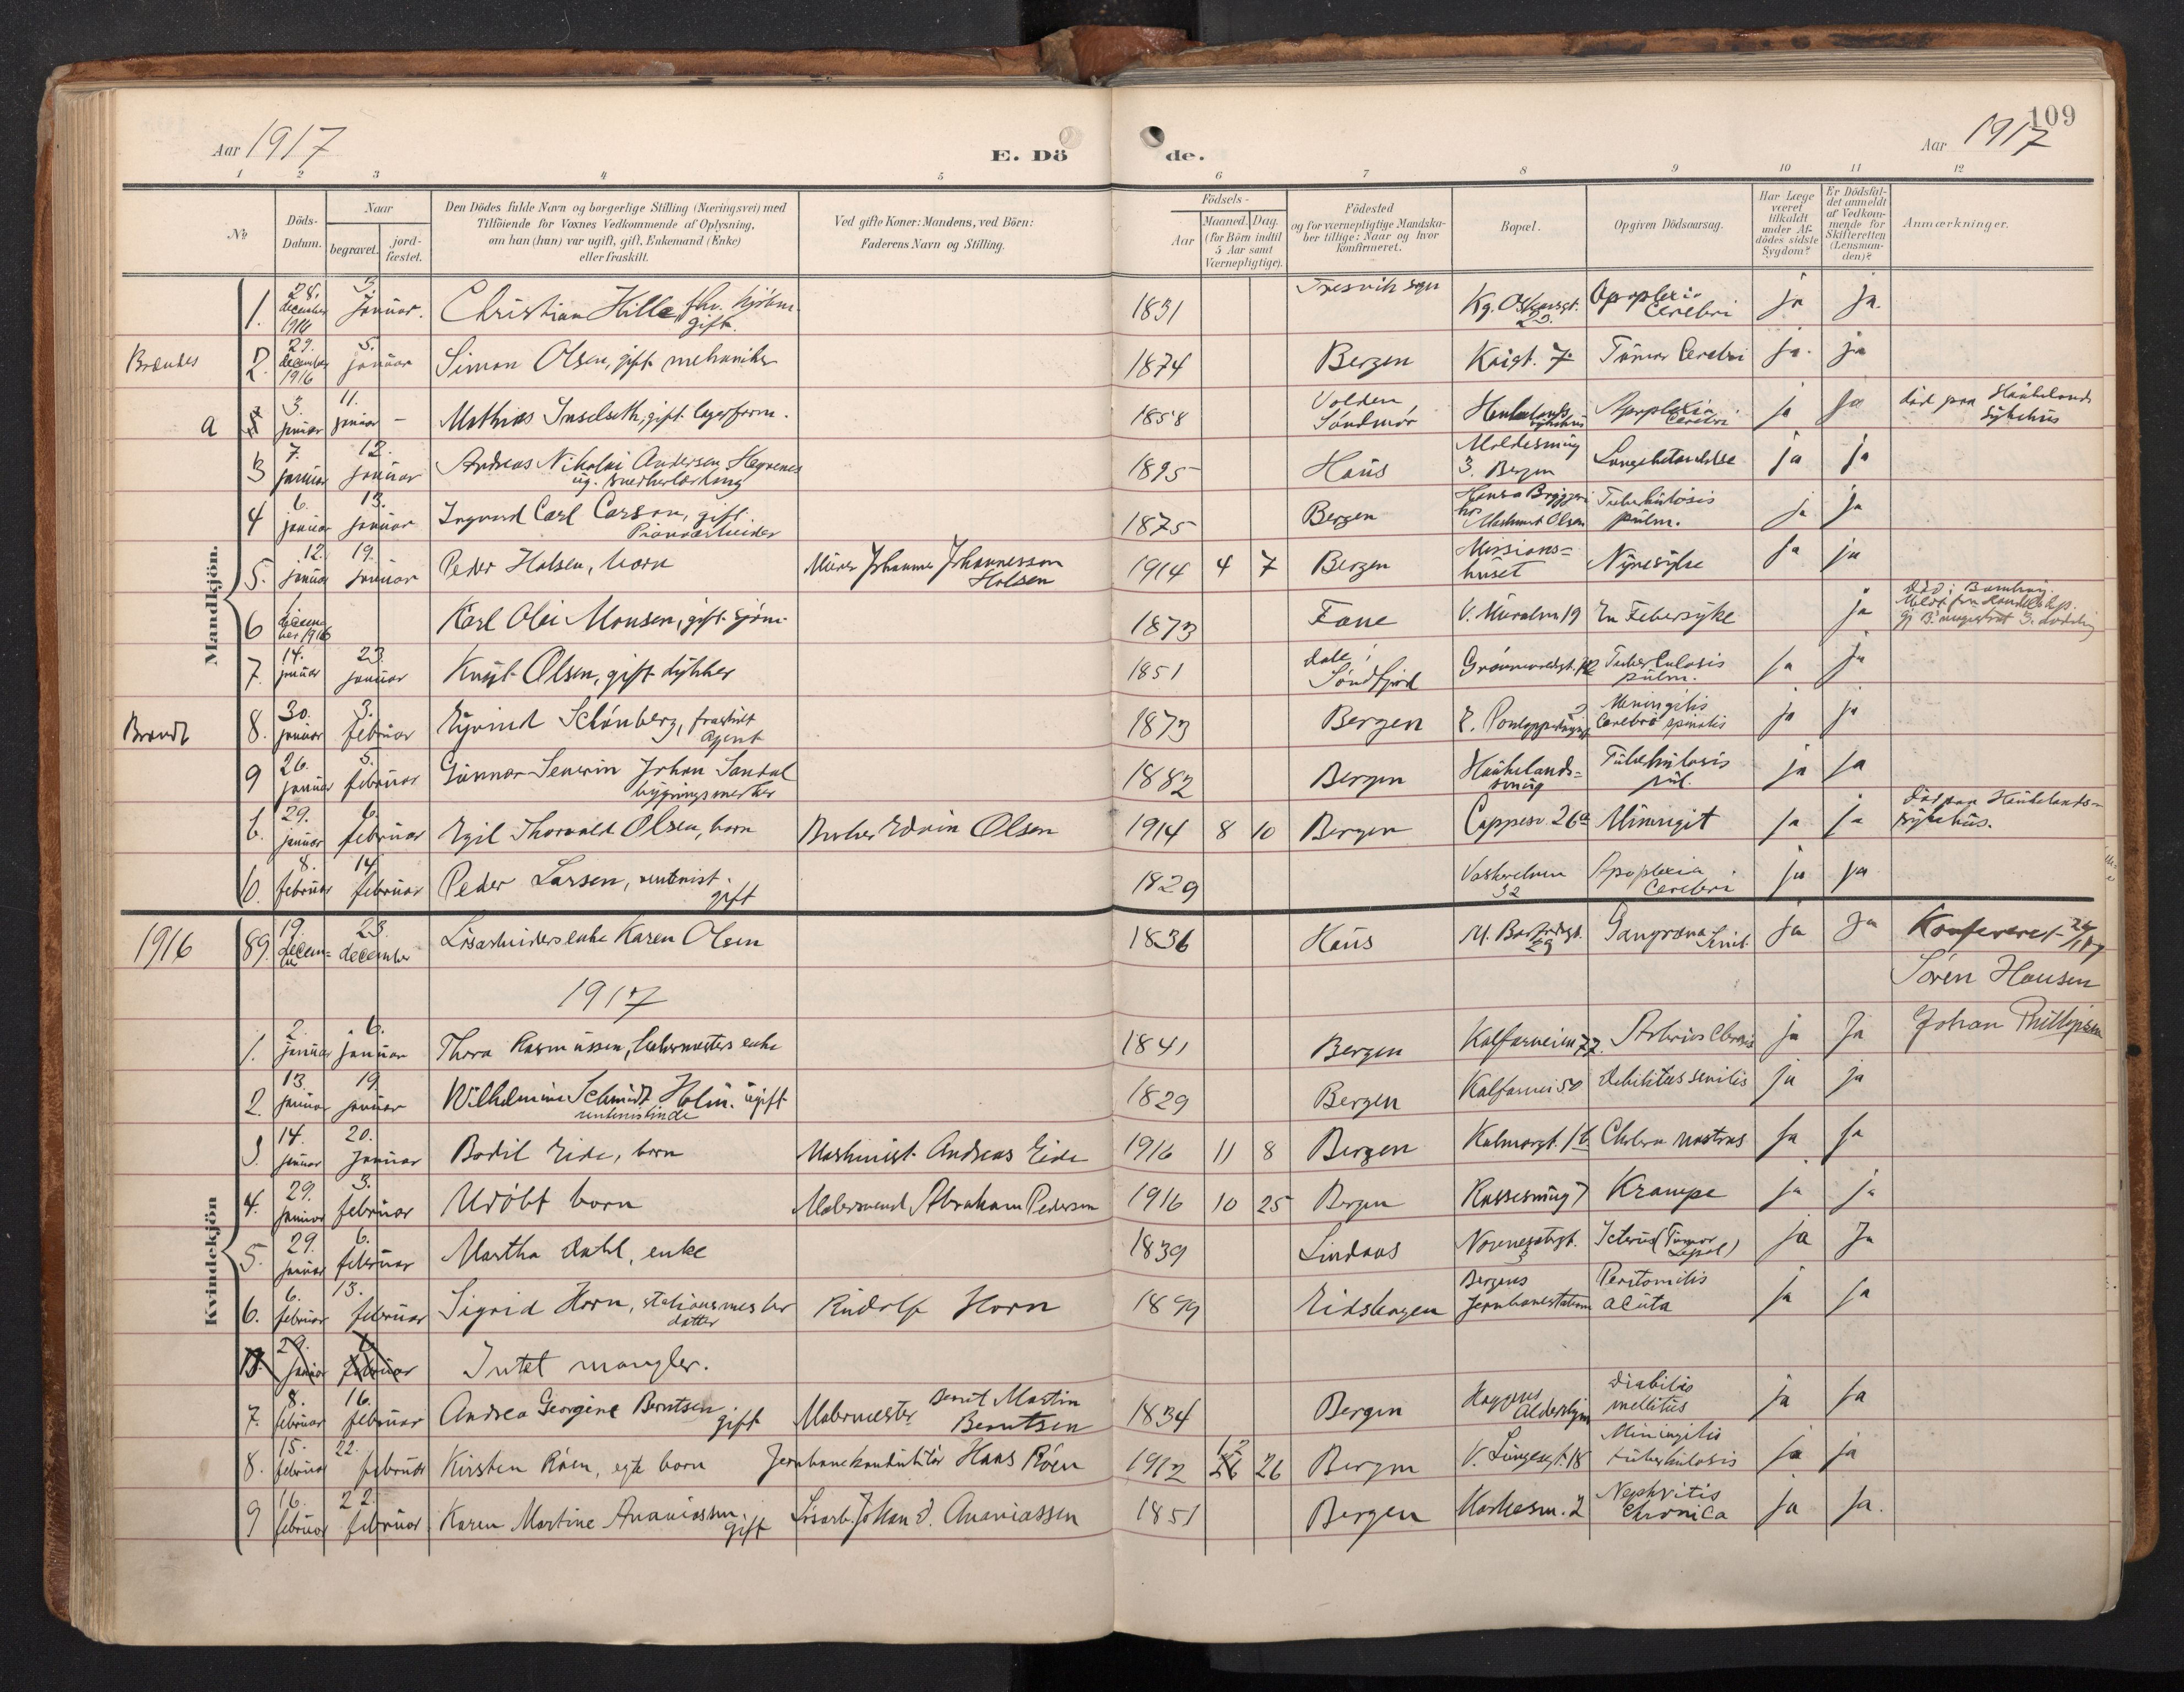 109
Aar 1917 E. Dö de. Aar 1917
1 2 3 4 5 6 7 8 9 10 11 12
No
Döds-Datum.
Naar
begravet. jord-fæstet.
Den Dödes fulde Navn og borgerlige Stilling (Næringsvei) med
Tilföiende for Voxnes Vedkommende af Oplysning,
om han (hun) var ugift, gift, Enkemand (Enke)
eller fraskilt.
Ved gifte Koner: Mandens, ved Börn:
Faderens Navn og Stilling.
Födsels-
Aar Maaned. Dag.
(for Börn indtil
5 Aar samt
Værnepligtige).
Födested
og for værnepligtige Mandska-
ber tillige: Naar og hvor
konfirmeret.
Bopæl.
Opgiven Dödsaarsag.
Har Læge
været
tilkaldt
under Af-
dödes sidste
Sygdom?
Er Dödsfal-
det anmeldt
af Vedkom-
mende for
Skifteretten
(Lensman-
den)?
Anmærkninger.
Mandkjön.
1. 28. december 1916 3. januar. Christian Hille, fhv. gift. 1831 Kg. Oskarsgt. 23. Apoplexia Cerebri ja ja.
2. 29. december 1916 5. januar Simon Olsen, gift mekaniker 1874 Bergen Kaigt. 7. Tumor Cerebri ja. ja
a 3. januar 11. januar - Mathias gift lagerform. 1858 Volden Söndmör Haukelands sykehus Apoplexia Cerebri ja ja död paa Haukelands sykehus
3 7. januar 12. januar Andreas Nikolai Andersen ug. snekkerlærling 1895 Haus Moldesmug 3. Bergen Lungebetændelse ja ja
4 6. januar 13. januar Ingvard Carl Carson, gift. Pianoarbeider 1875 Bergen Hansa Bryggeri Olsen Tuberkulosis pulm. ja ja
5. 12. januar 19. januar Peder Halsen, barn Murer Johannes Johannesson Halsen 1914 4 7 Bergen Missions=huset Nyresyke ja ja
6 desember 1916 Karl Olai Monsen, gift sjöm. 1873 Fane V. Muralm. 19 En Febersyke ja
7. 14. januar 23. januar Knut Olsen, gift dykker 1851 dale i Söndfjord Tuberkulosis pulm. ja ja
Brændt 8. 30. januar 3. februar Eyvind Schönberg, fraskilt agent 1873 Bergen Meningitis Cerebro spinalis ja ja
9 26. januar 5. februar Gunnar Severin Johan Sandal bygningsmester 1882 Bergen Haukelands=smug Tuberkulosis pul. ja ja
29. januar 6. februar Egil Thorvald Olsen, barn Edvin Olsen 1914 8 10 Bergen Cappesv. 26a Miningit ja ja död paa Haukelands=sykehus.
10. 8. februar 14. februar Peder Larsen, rentenist. gift 1829 Vaskerelven 32 Apoplexia Cerebri ja ja
1916 89. 19. decem=ber 23. december Lösarbeiders enke Karen Olsen 1836 Haus 29 Gangræna Senil ja Ja Konfereret 24/1 17
Sören Hansen
1917
Kvindekjön
1. 2. januar 6. januar Thora Rasmussen, enke 1841 Bergen Kalfarveien 77. ja Ja Johan Phillipsen
2. 13. januar 19 januar Wilhelmine Schmidt Holm. ugift rentenistinde 1829 Bergen Kalfarvei 50 debilitas senilis ja ja
3. 14. januar 20. januar Bodil Eide, barn Maskinist Andreas Eide 1916 11 8 Bergen Kalmargt. Cholera nostras ja ja
4. 29. januar 3. februar Udöbt barn Malersvend Abraham Pedersen 1916 10 25 Bergen Krampe ja ja
5. 29. januar 6. februar Martha Dahl, enke 1839 Lindaas Icterus (Tumor ja Ja
6. 6. februar 13. februar Sigrid Horn, stationsmester datter Rudolf Horn 1899 Bergens Jernbanestation Peritonitis acuta ja ja
29. januar februar Intet mangler.
7. 8. februar 16. februar Andrea Georgine Berntsen gift Malermester Bernt Martin Berntsen 1834 Bergen diabilis mellitus ja ja
8. 15. februar 22. februar Kirsten Röen, egte barn Jernbanekonduktör Hans Röen 1912 12 26 Bergen V. Lungegt. 18 Miningitis tuberkulosis ja ja
9 16. februar 22. februar Karen Martine Ananiassen. gift Lösarb. Johan J. Ananiassen 1851 Bergen 2 Nephritis Chronica ja ja.